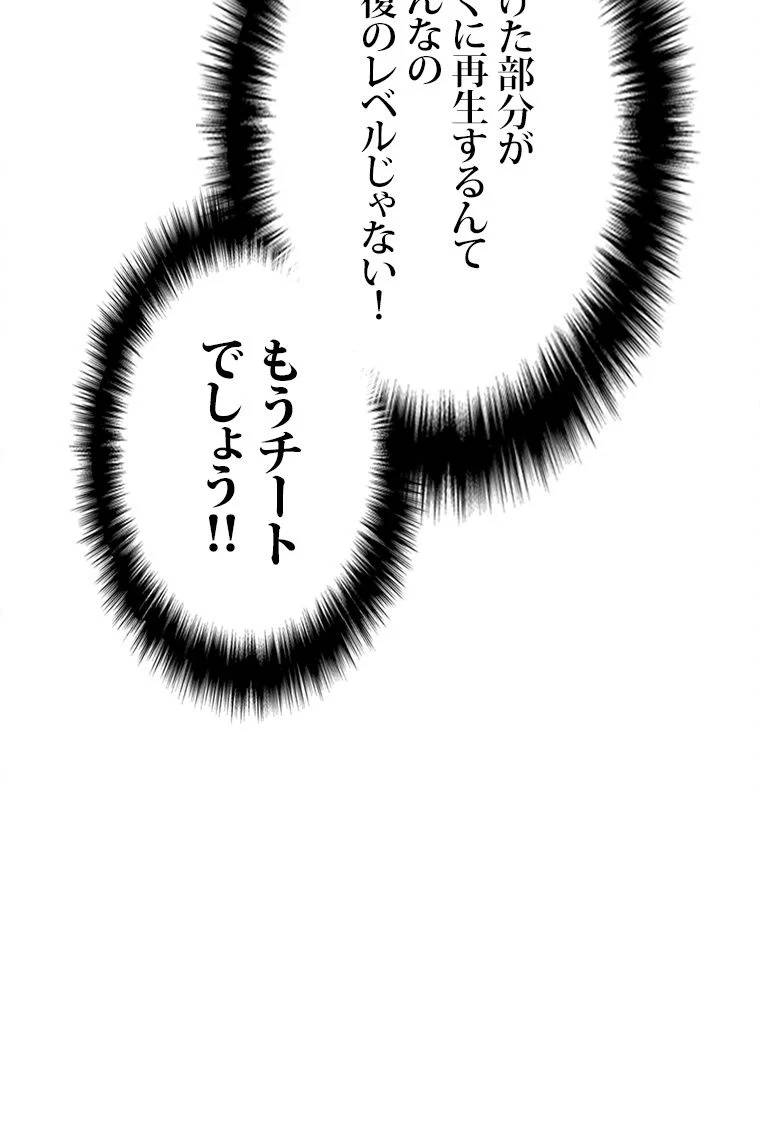 けた部分が
に再生するんて
んなの
後のレベルじゃない！
もうチート
でしょう!!